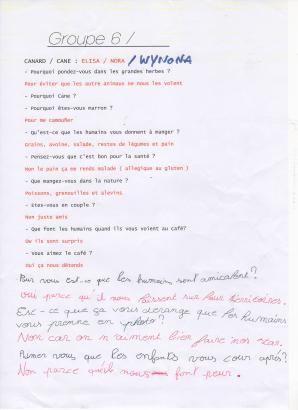 Groupe 6 /
CANARD / CANE : ELISA / NORA / WYNONA
- Pourquoi pondez-vous dans les grandes herbes ?
Pour éviter que les autres animaux ne nous les volent
- Pourquoi Cane ?
- Pourquoi êtes-vous marron ?
Pour me camoufler
- Qu'est-ce que les humains vous donnent à manger ?
Grains, avoine, salade, restes de légumes et pain
- Pensez-vous que c'est bon pour la santé ?
Non le pain ça me rends malade ( allegique au gluten )
- Que mangez-vous dans la nature ?
Poissons, grenouilles et alevins
- Etes-vous en couple ?
Non juste amis
- Que font les humains quand ils vous voient au café?
Ow ils sont surpris
- Vous aimez le café ?
Oui ça nous détends
Pour vous est-ce que les humains sont amicalent?
Oui parce qu'il nous laissent sur leur térritoires.
Esc-ce que ça vous derange que les humains
vous prenne en photo?
Non car on n'aument bien faire nos star.
Aimer vous que les enfants vous cour après?
Non parce qu'il nous font peur.